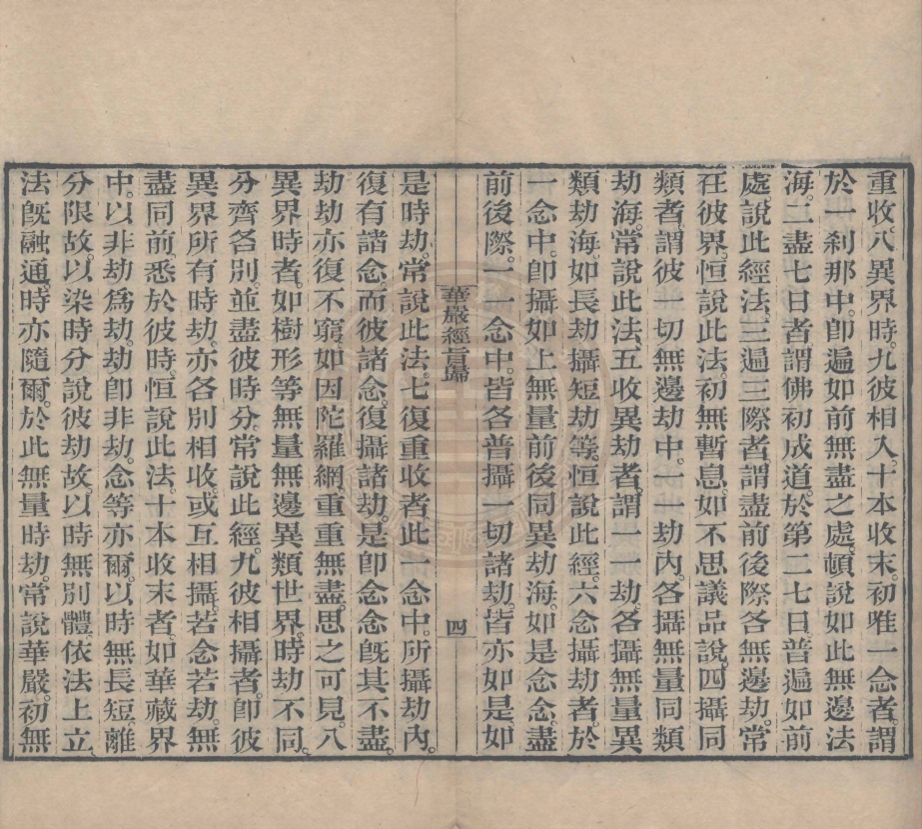 重收八異界時。九彼相入。十本收末。初唯一念者。謂
於一剎那中。卽遍如前無盡之處。頓說如此無邊法
海。二盡七日者。謂佛初成道。於第二七日普遍如前
處。說此經法。三遍三際者。謂盡前後際各無邊劫。常
在彼界。恒說此法。初無暫息。如不思議品說。四攝同
類者。謂彼一切無邊劫中。一一劫內。各攝無量同類
劫海。常說此法。五收異劫者。謂一一劫。各攝無量異
類劫海。如長劫攝短劫等。恒說此經。六念攝劫者。於
一念中。卽攝如上無量前後同異劫海。如是念念。盡
前後際。一一念中。皆各普攝一切諸劫。皆亦如是如
華嚴經旨歸
四
是時劫。常說此法。七復重收者。此一念中。所攝劫內。
復有諸念。而彼諸念。復攝諸劫。是卽念念旣其不盡。
劫劫亦復不窮。如因陀羅網。重重無盡。思之可見。八
異界時者。如樹形等無量無邊異類世界。時劫不同。
分齊各別。並盡彼時分。常說此經。九彼相攝者。卽彼
異界所有時劫。亦各別相收。或互相攝。若念若劫。無
盡同前。悉於彼時。恒說此法。十本收末者。如華藏界
中。以非劫爲劫。劫卽非劫。念等亦爾。以時無長短。離
分限故。以染時分說彼劫故。以時無別體。依法上立。
法旣融通。時亦隨爾。於此無量時劫。常說華嚴。初無